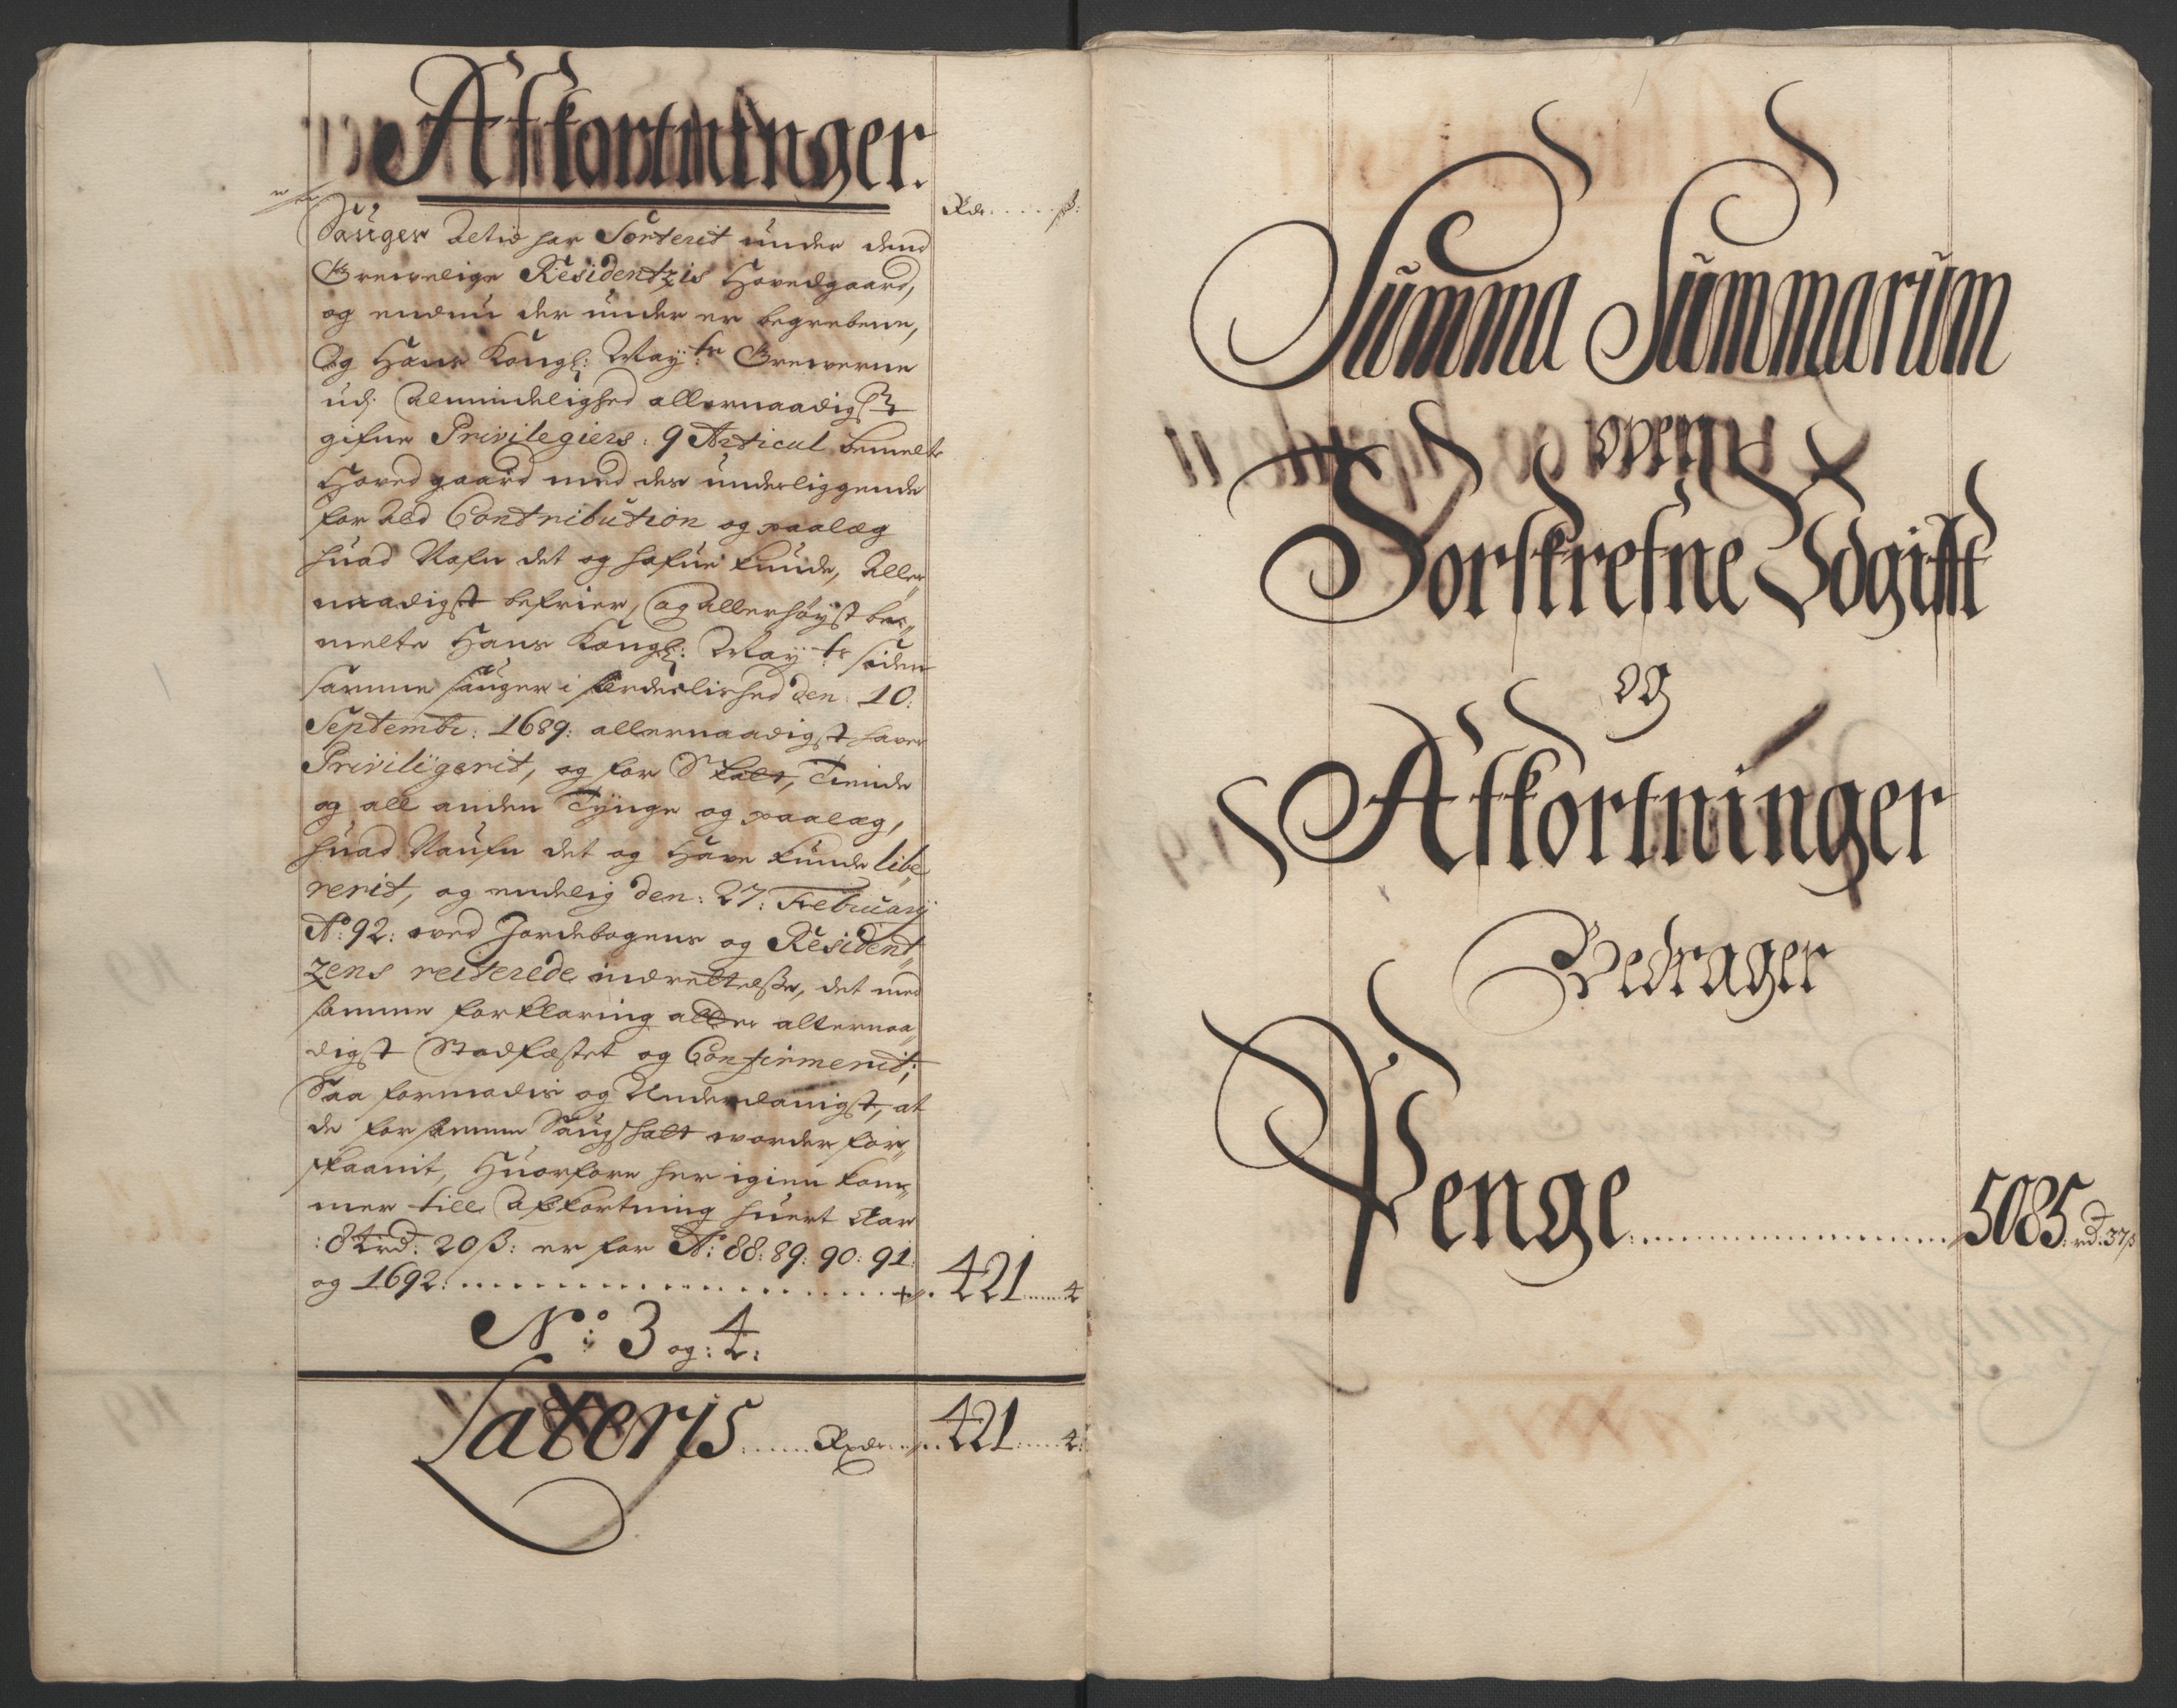 Afkortninger.
Rdr ...... ß:
Sauger Altid har Sorterit under dend
Grevelige Residentzis Hovedgaard,
og endnu der under er begrebene,
Og Hans Kongl: May:ts Greverne
udj Almindelighed allernaadigst
gifne Privilegiers: 9 Articul bemelte
Hoved gaard med des underliggende
for Ald Contribution og paalæg
huad Nafn det og hafue kunde, Aller
naadigst befrier, og Allerhøyst be„
melte Hans Kongl: May:ts siden
samme Sauger i særdelished den: 10:
Septembr: 1689: allernaadigst haver
Priviligerit, og for Skatt, Tiende
og all anden Tynge og paalæg,
huad Naufn det og Have kunde libe„
rerit, og endelig den: 27: Februarij
Ao: 92: ved Jordebogens og Resident„
zens reiterede indrettelse, det med
samme forklaring aller allernaa„
digst Stadfæstet og Confirmerit;
Saa formodis og Underdanigst, at
de for samme Saugskatt vorder for„
skaanit, Huorfore her igien kom„
mer till Afkortning huert Aar
: 84 rd: 20 ß: er for Ao: 88: 89: 90: 91:
og 1692: ........ 421 .... 4
No: 3 og: 4:
Lateris ...... Rdr ... 421 .... 4:
Summa Summarum
oven
Forskrefne Udgifft
og
Afkortninger
Bedrager
Penge ........ 5085 rd. 37 ß